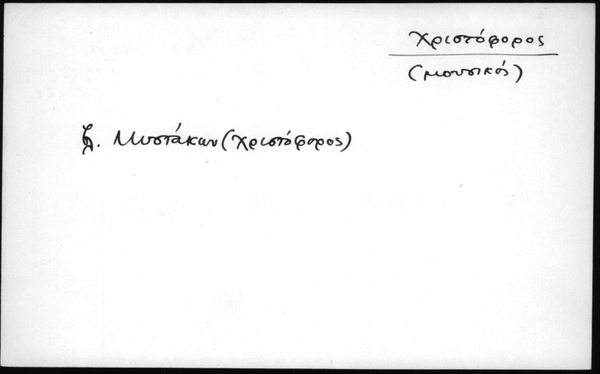 Χριστόφορος
(μουσικός)
ζ. Μυστάκων (Χριστόφορος)